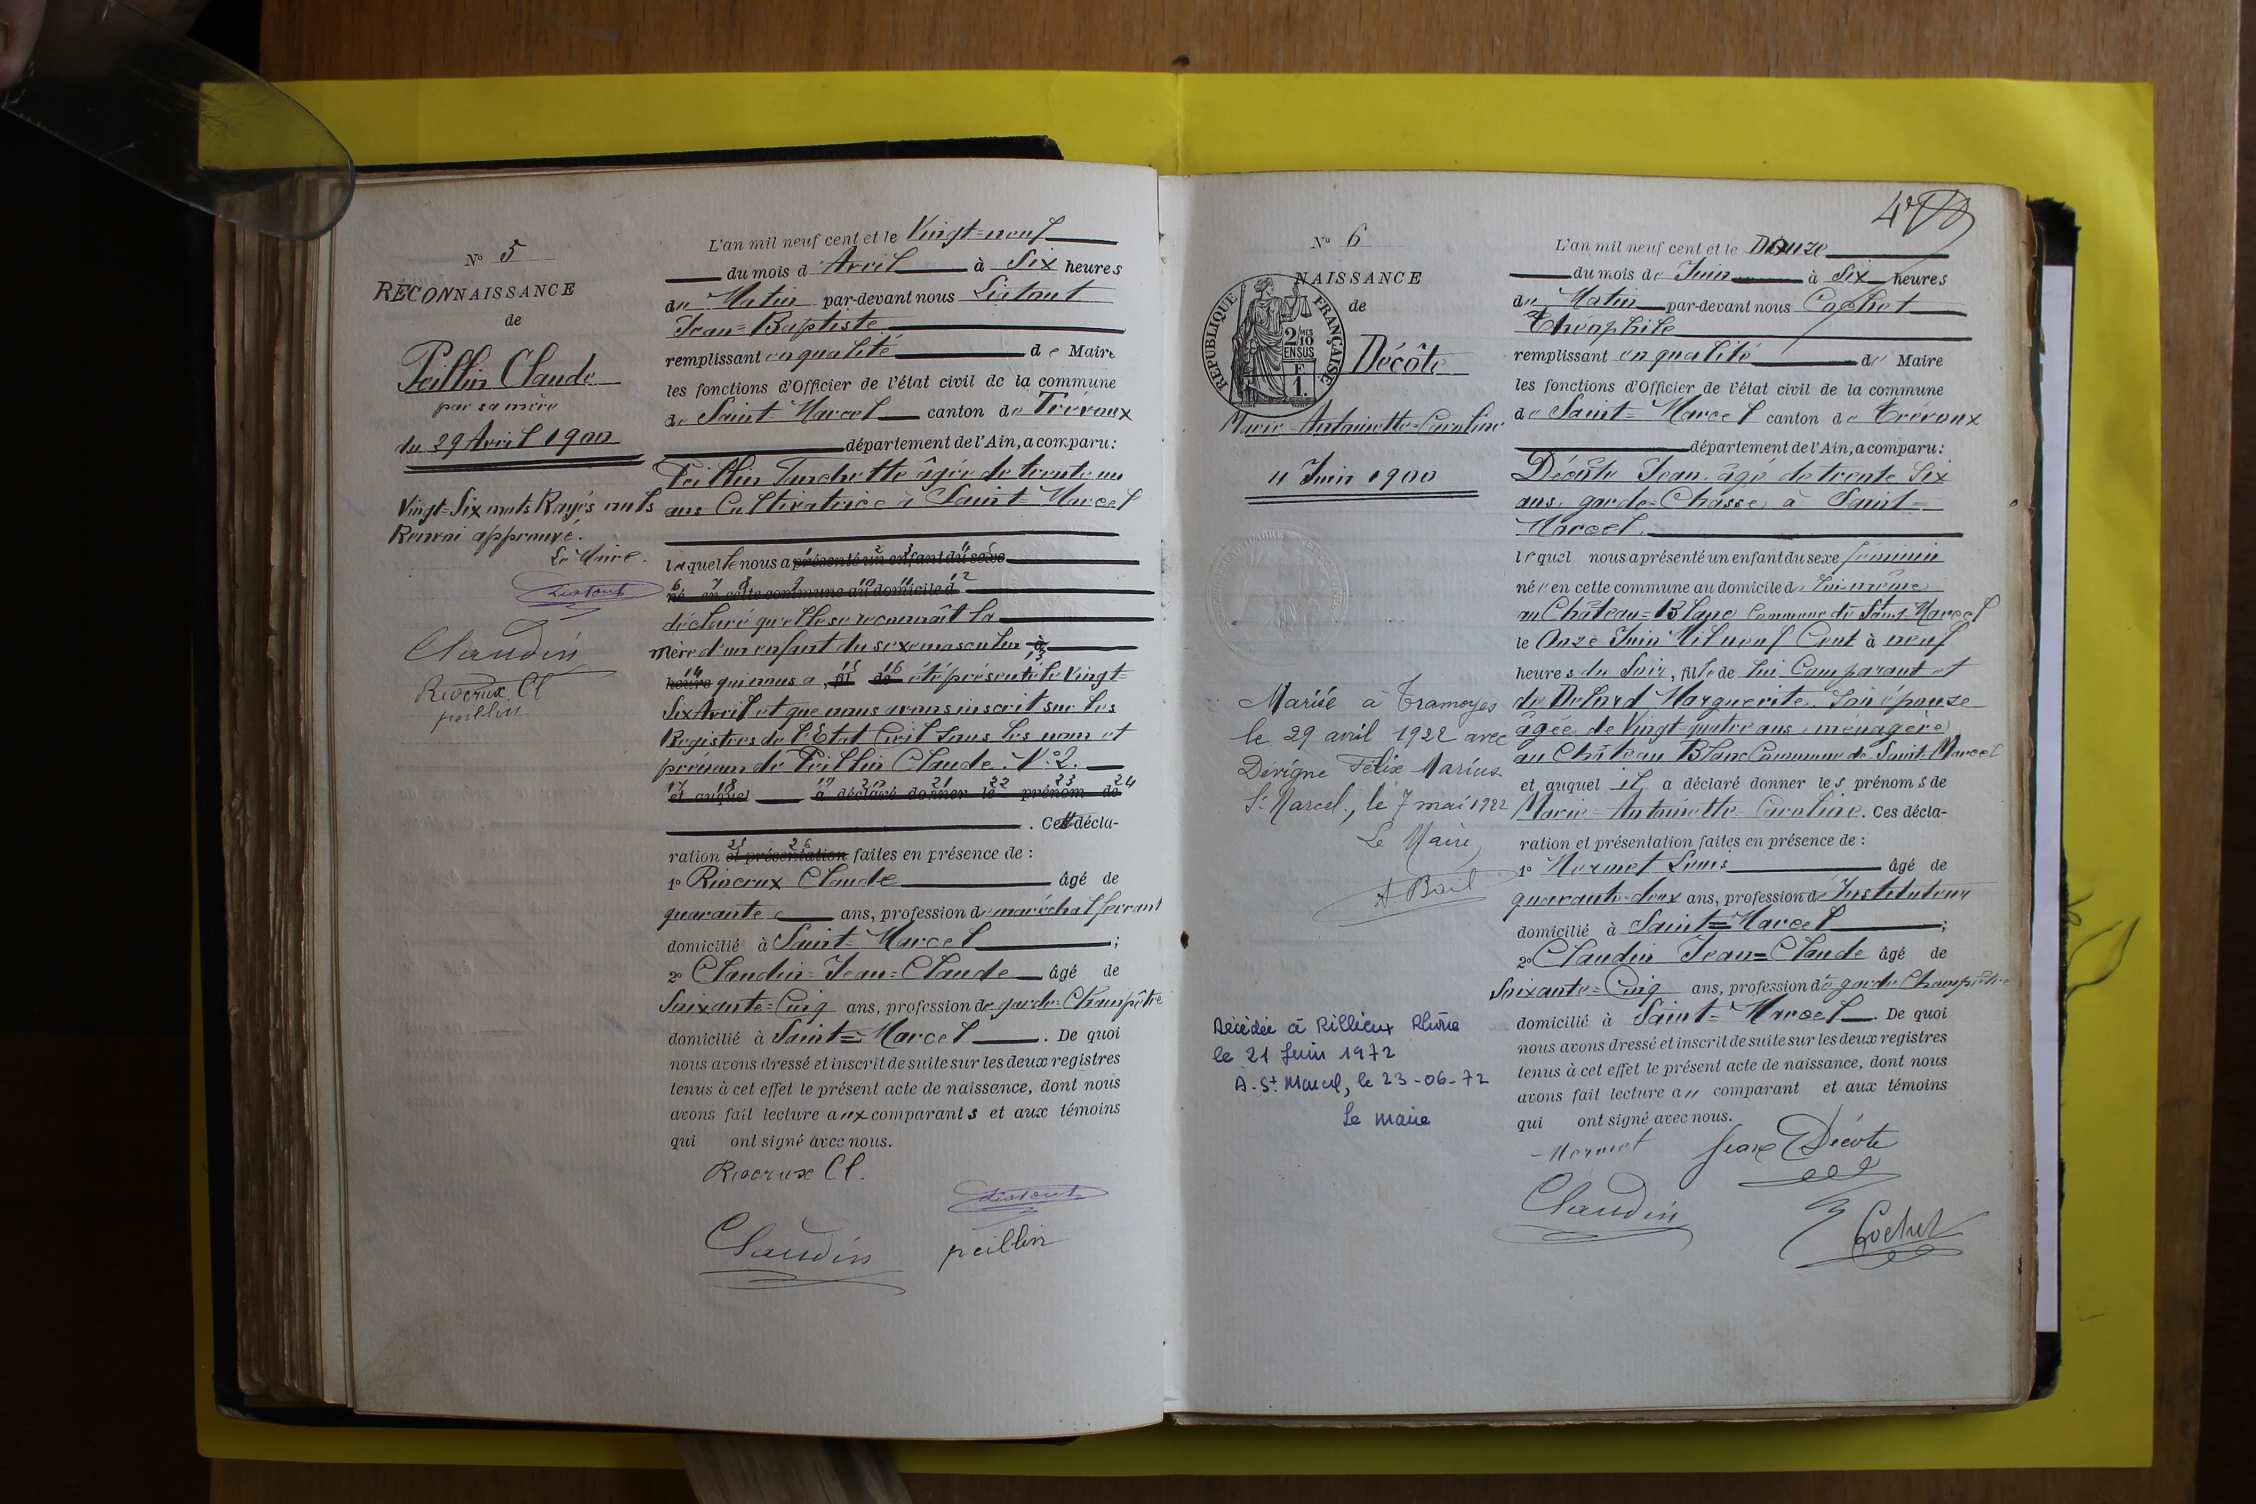 N° 5
RECONNAISSANCE
de
Peillin Claude
par sa mère
du 29 Avril 1900
Vingt=Six mots Rayés nuls
Renvoi approuvé.
Le Maire.
Claudin
Riveraux Cl
peillin
L'an mil neuf cent et le Vingt=neuf
du mois d'Avril à Six heures
du Matin par-devant nous
Jean=Baptiste
remplissant en qualité de Maire
les fonctions d'Officier de l'état civil de la commune
de Saint=Marcel canton de Trévoux
département de l'Ain, a comparu :
Peillin âgée de trente un
ans Cultivatrice à Saint=Marcel
laquelle nous a présenté un enfant du sexe
né en cette commune au domicile d
déclaré qu'elle se reconnaît la
mère d'un enfant du sexe masculin à
heure qui nous a fil de été présenté le Vingt=
Six Avril et que nous avons inscrit sur les
Registres de l'Etat Civil sous les nom et
prénom de Peillin Claude. N°2.
et auquel a déclaré donner le prénom de
. Cett décla-
ration et présentation faites en présence de :
1° Riveraux Claude âgé de
quarante ans, profession de maréchal ferrant
domicilié à Saint=Marcel ;
2° Claudin=Jean=Claude âgé de
Soixante=Cinq ans, profession de garde Champêtre
domicilié à Saint=Marcel . De quoi
nous avons dressé et inscrit de suite sur les deux registres
tenus à cet effet le présent acte de naissance, dont nous
avons fait lecture aux comparants et aux témoins
qui ont signé avec nous.
Riveraux Cl.
Claudin peillin
N° 6
NAISSANCE
de
REPUBLIQUE FRANÇAISE
2/10 EN SUS
1F.
Décôte
Marie=Antoinette=Caroline
11 Juin 1900
Mariée à Tramoyes
le 29 avril 1922 avec
Dérigne Félix Marius
St Marcel, le 7 mai 1922
Le Maire,
Décédée à Rillieux Rhône
le 21 Juin 1972
A. St Marcel, le 23-06-72
Le maire
L'an mil neuf cent et le Douze
du mois de Juin à Six heures
du Matin par-devant nous Cochet
Théophile
remplissant en qualité de Maire
les fonctions d'Officier de l'état civil de la commune
de Saint=Marcel canton de Trévoux
département de l'Ain, a comparu :
Décôte Jean âgé de trente Six
ans garde=Chasse à Saint=
Marcel
lequel nous a présenté un enfant du sexe féminin
née en cette commune au domicile de lui même
au Château=Blanc Commune de Saint=Marcel
le Onze Juin Mil neuf Cent à neuf
heures du Soir, fille de lui Comparant et
de Marguerite, son épouse
âgée de Vingt quatre ans ménagère
au Château Blanc Commune de Saint=Marcel
et auquel il a déclaré donner les prénoms de
Marie=Antoinette=Caroline. Ces décla-
ration et présentation faites en présence de :
1° Mermet Louis âgé de
quarante-deux ans, profession d'Instituteur
domicilié à Saint=Marcel ;
2° Claudin Jean=Claude âgé de
Soixante=Cinq ans, profession de garde Champêtre
domicilié à Saint=Marcel . De quoi
nous avons dressé et inscrit de suite sur les deux registres
tenus à cet effet le présent acte de naissance, dont nous
avons fait lecture au comparant et aux témoins
qui ont signé avec nous.
Mermet Jean Décote
Claudin
Cochet